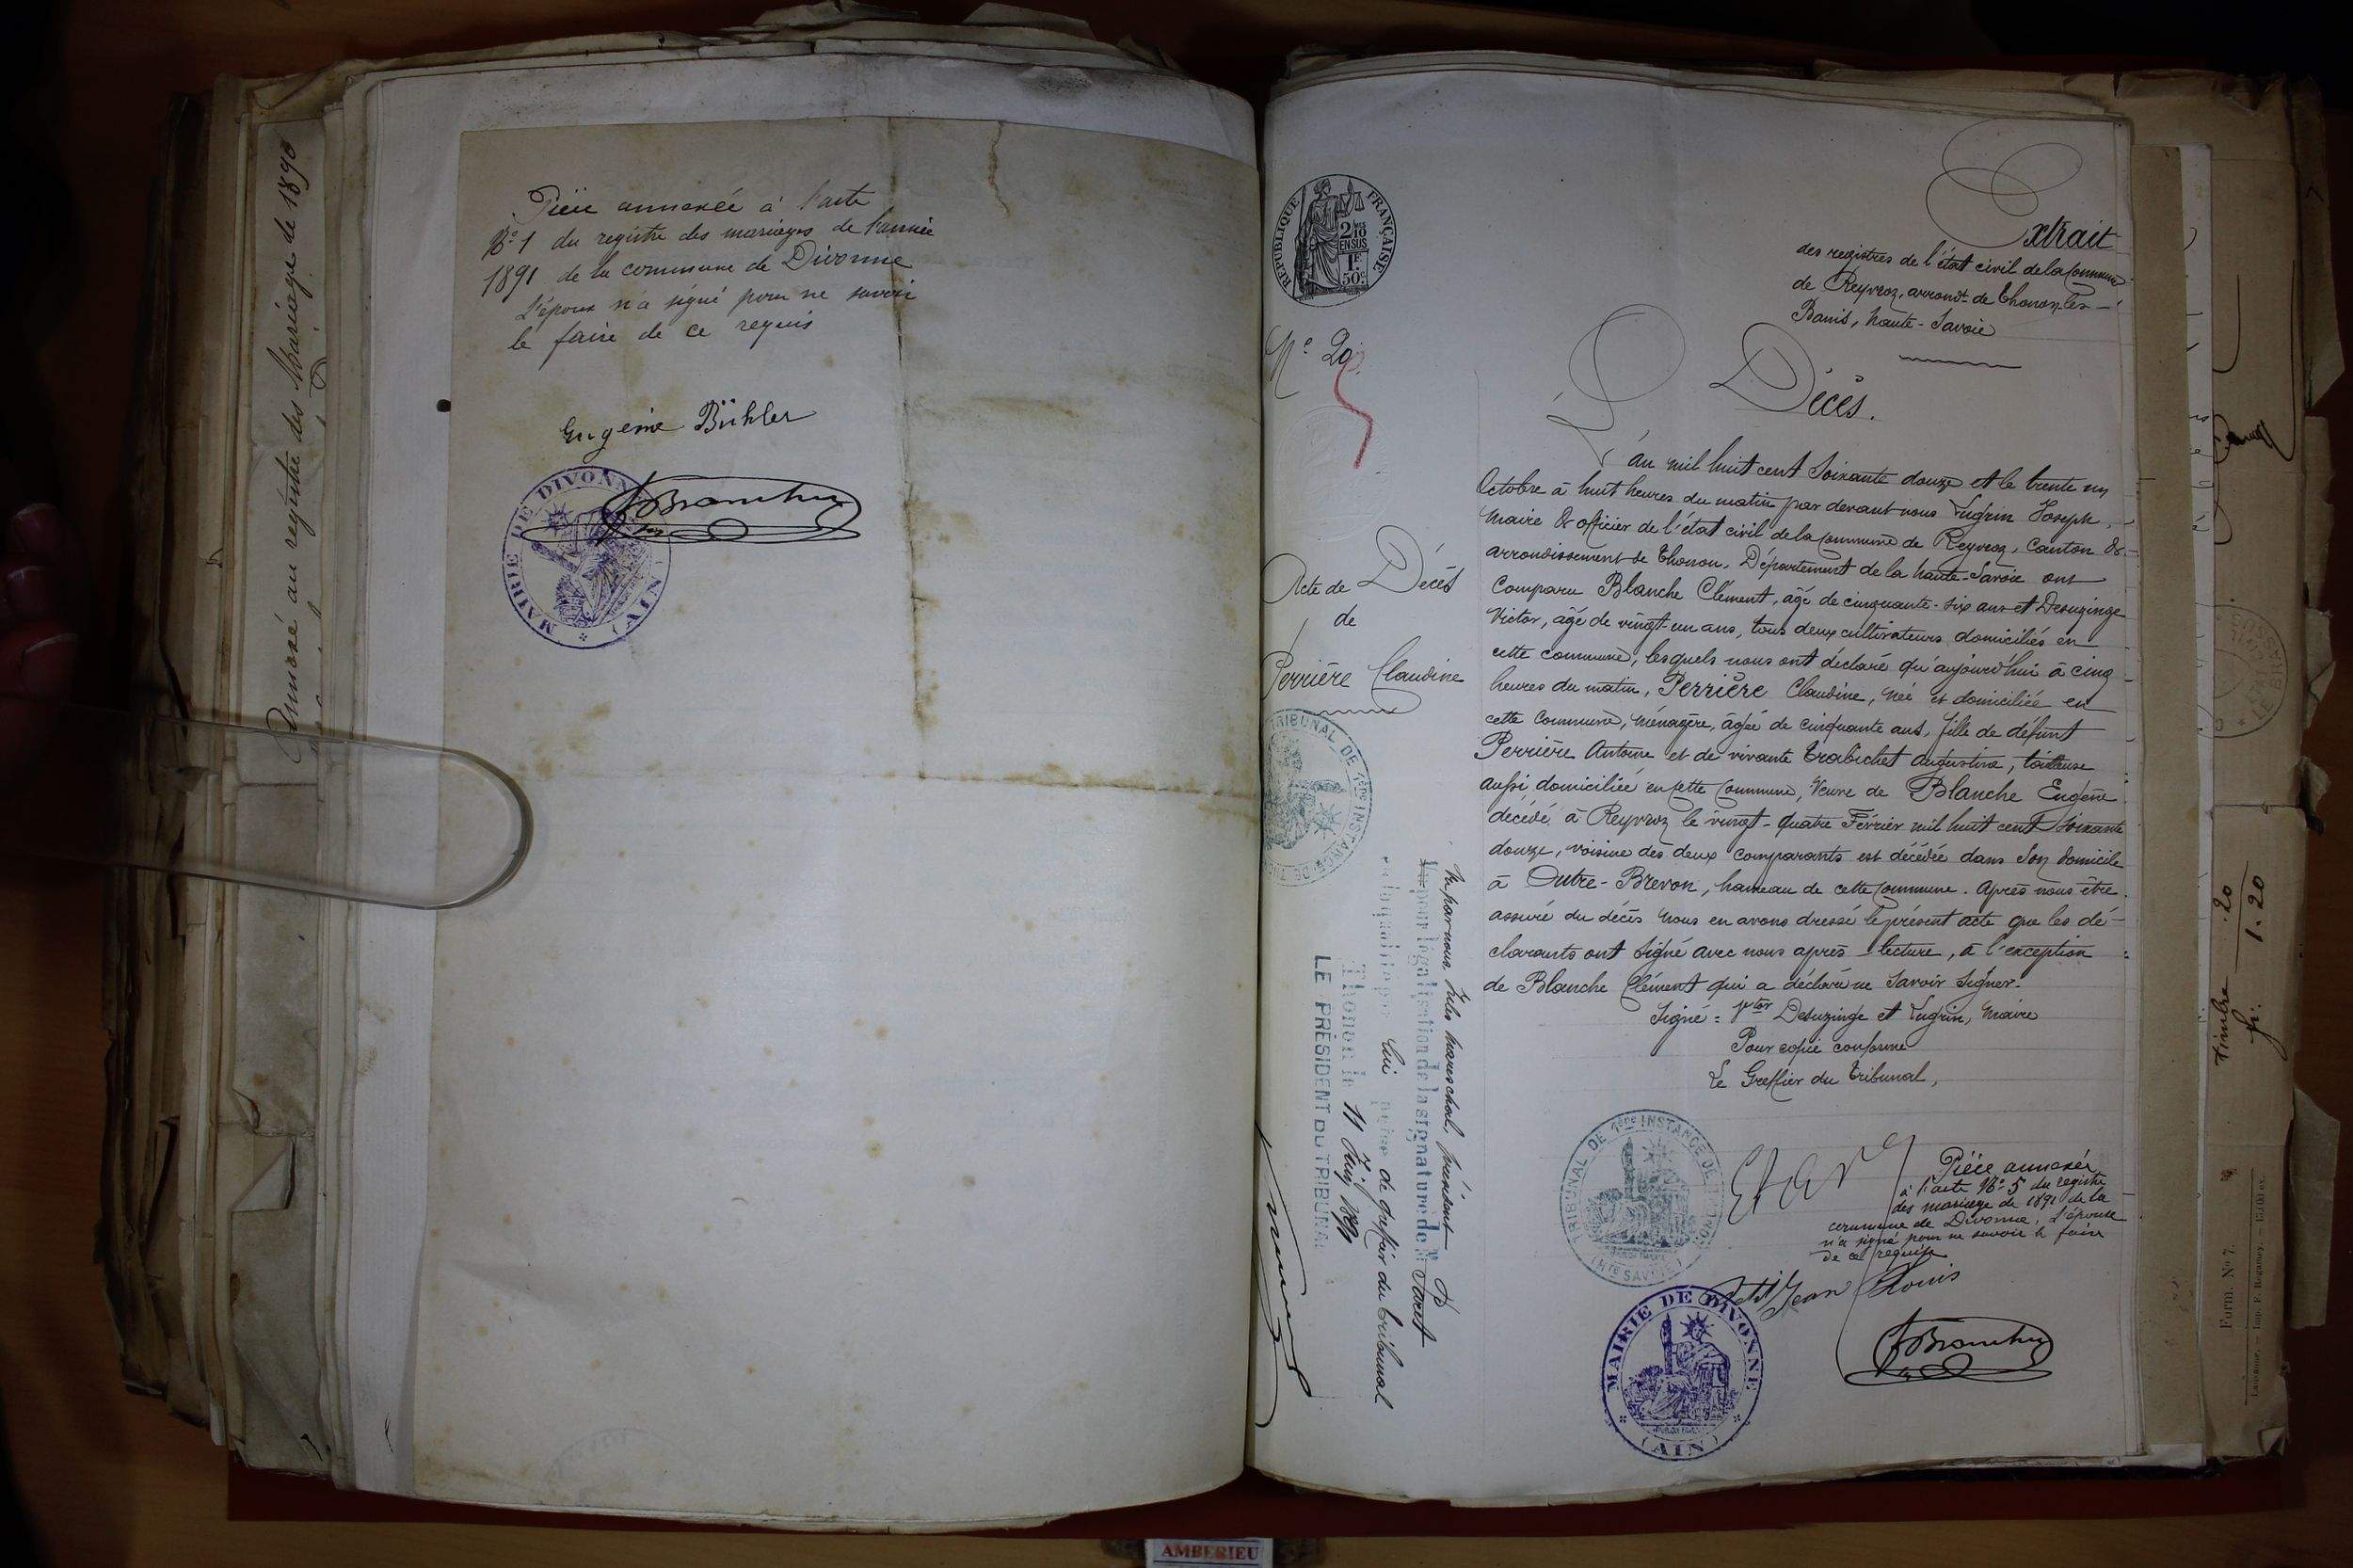 Annexé au registre des Mariages de 1890
Pièce annexée à l'acte
N° 1 du registre des mariages de l'année
1891 de la commune de Divonne
L'époux n'a signé pour ne savoir
le faire de ce requis
Eugénie Bühler
MAIRIE DE DIVONNE (AIN)
RÉPUBLIQUE FRANÇAISE
2/10 EN SUS
1F 50c
Extrait
des registres de l'état civil de la Commune
de Reyvroz, arrondt de Thonon-les-
Bains, haute-Savoie
N° 20
Décès.
Acte de Décès
de
Perrière Claudine
L'an mil huit cent Soixante douze et le trente un
Octobre à huit heures du matin par devant nous Lugrin Joseph,
Maire & officier de l'état civil de la Commune de Reyvroz, Canton &
arrondissement de Thonon, Département de la haute-Savoie ont
Comparu Blanche Clément, âgé de cinquante-six ans et Desuzinge
Victor, âgé de vingt-un ans, tous deux cultivateurs domiciliés en
cette commune, lesquels nous ont déclaré qu'aujourd'hui à cinq
heures du matin, Perrière Claudine, née et domiciliée en
cette Commune, ménagère, âgée de cinquante ans, fille de défunt
Perrière Antoine et de vivante Trabichet Augustine, tailleuse
aussi domiciliée en cette Commune, Veuve de Blanche Eugène
décédé à Reyvroz le vingt-quatre Février mil huit cent Soixante
douze, voisine des deux comparants est décédée dans son domicile
à Outre-Brevon, hameau de cette Commune. Après nous être
assuré du décès nous en avons dressé le présent acte que les dé-
clarants ont signé avec nous après lecture, à l'exception
de Blanche Clément qui a déclaré ne savoir signer.
Signé: Vtor Desuzinge et Lugrin, Maire
Pour copie conforme
Le Greffier du Tribunal,
TRIBUNAL DE 1ère INSTANCE DE THONON (HTE SAVOIE)
Vu par nous Jules mareschal, président
Vu pour légalisation de la signature de M.
de greffier du tribunal
Thonon le 11 Juin 1890
LE PRÉSIDENT DU TRIBUNAL
TRIBUNAL DE 1ère INSTANCE DE THONON (HTE SAVOIE)
Pièce annexée
à l'acte N° 5 du registre
des mariage de 1891 de la
commune de Divonne, L'épouse
n'a signé pour ne savoir le faire
de ce requise
Petit Jean Louis
MAIRIE DE DIVONNE (AIN)
timbre .20
fr. 1.20
Form. N° 7.
AMBERIEU